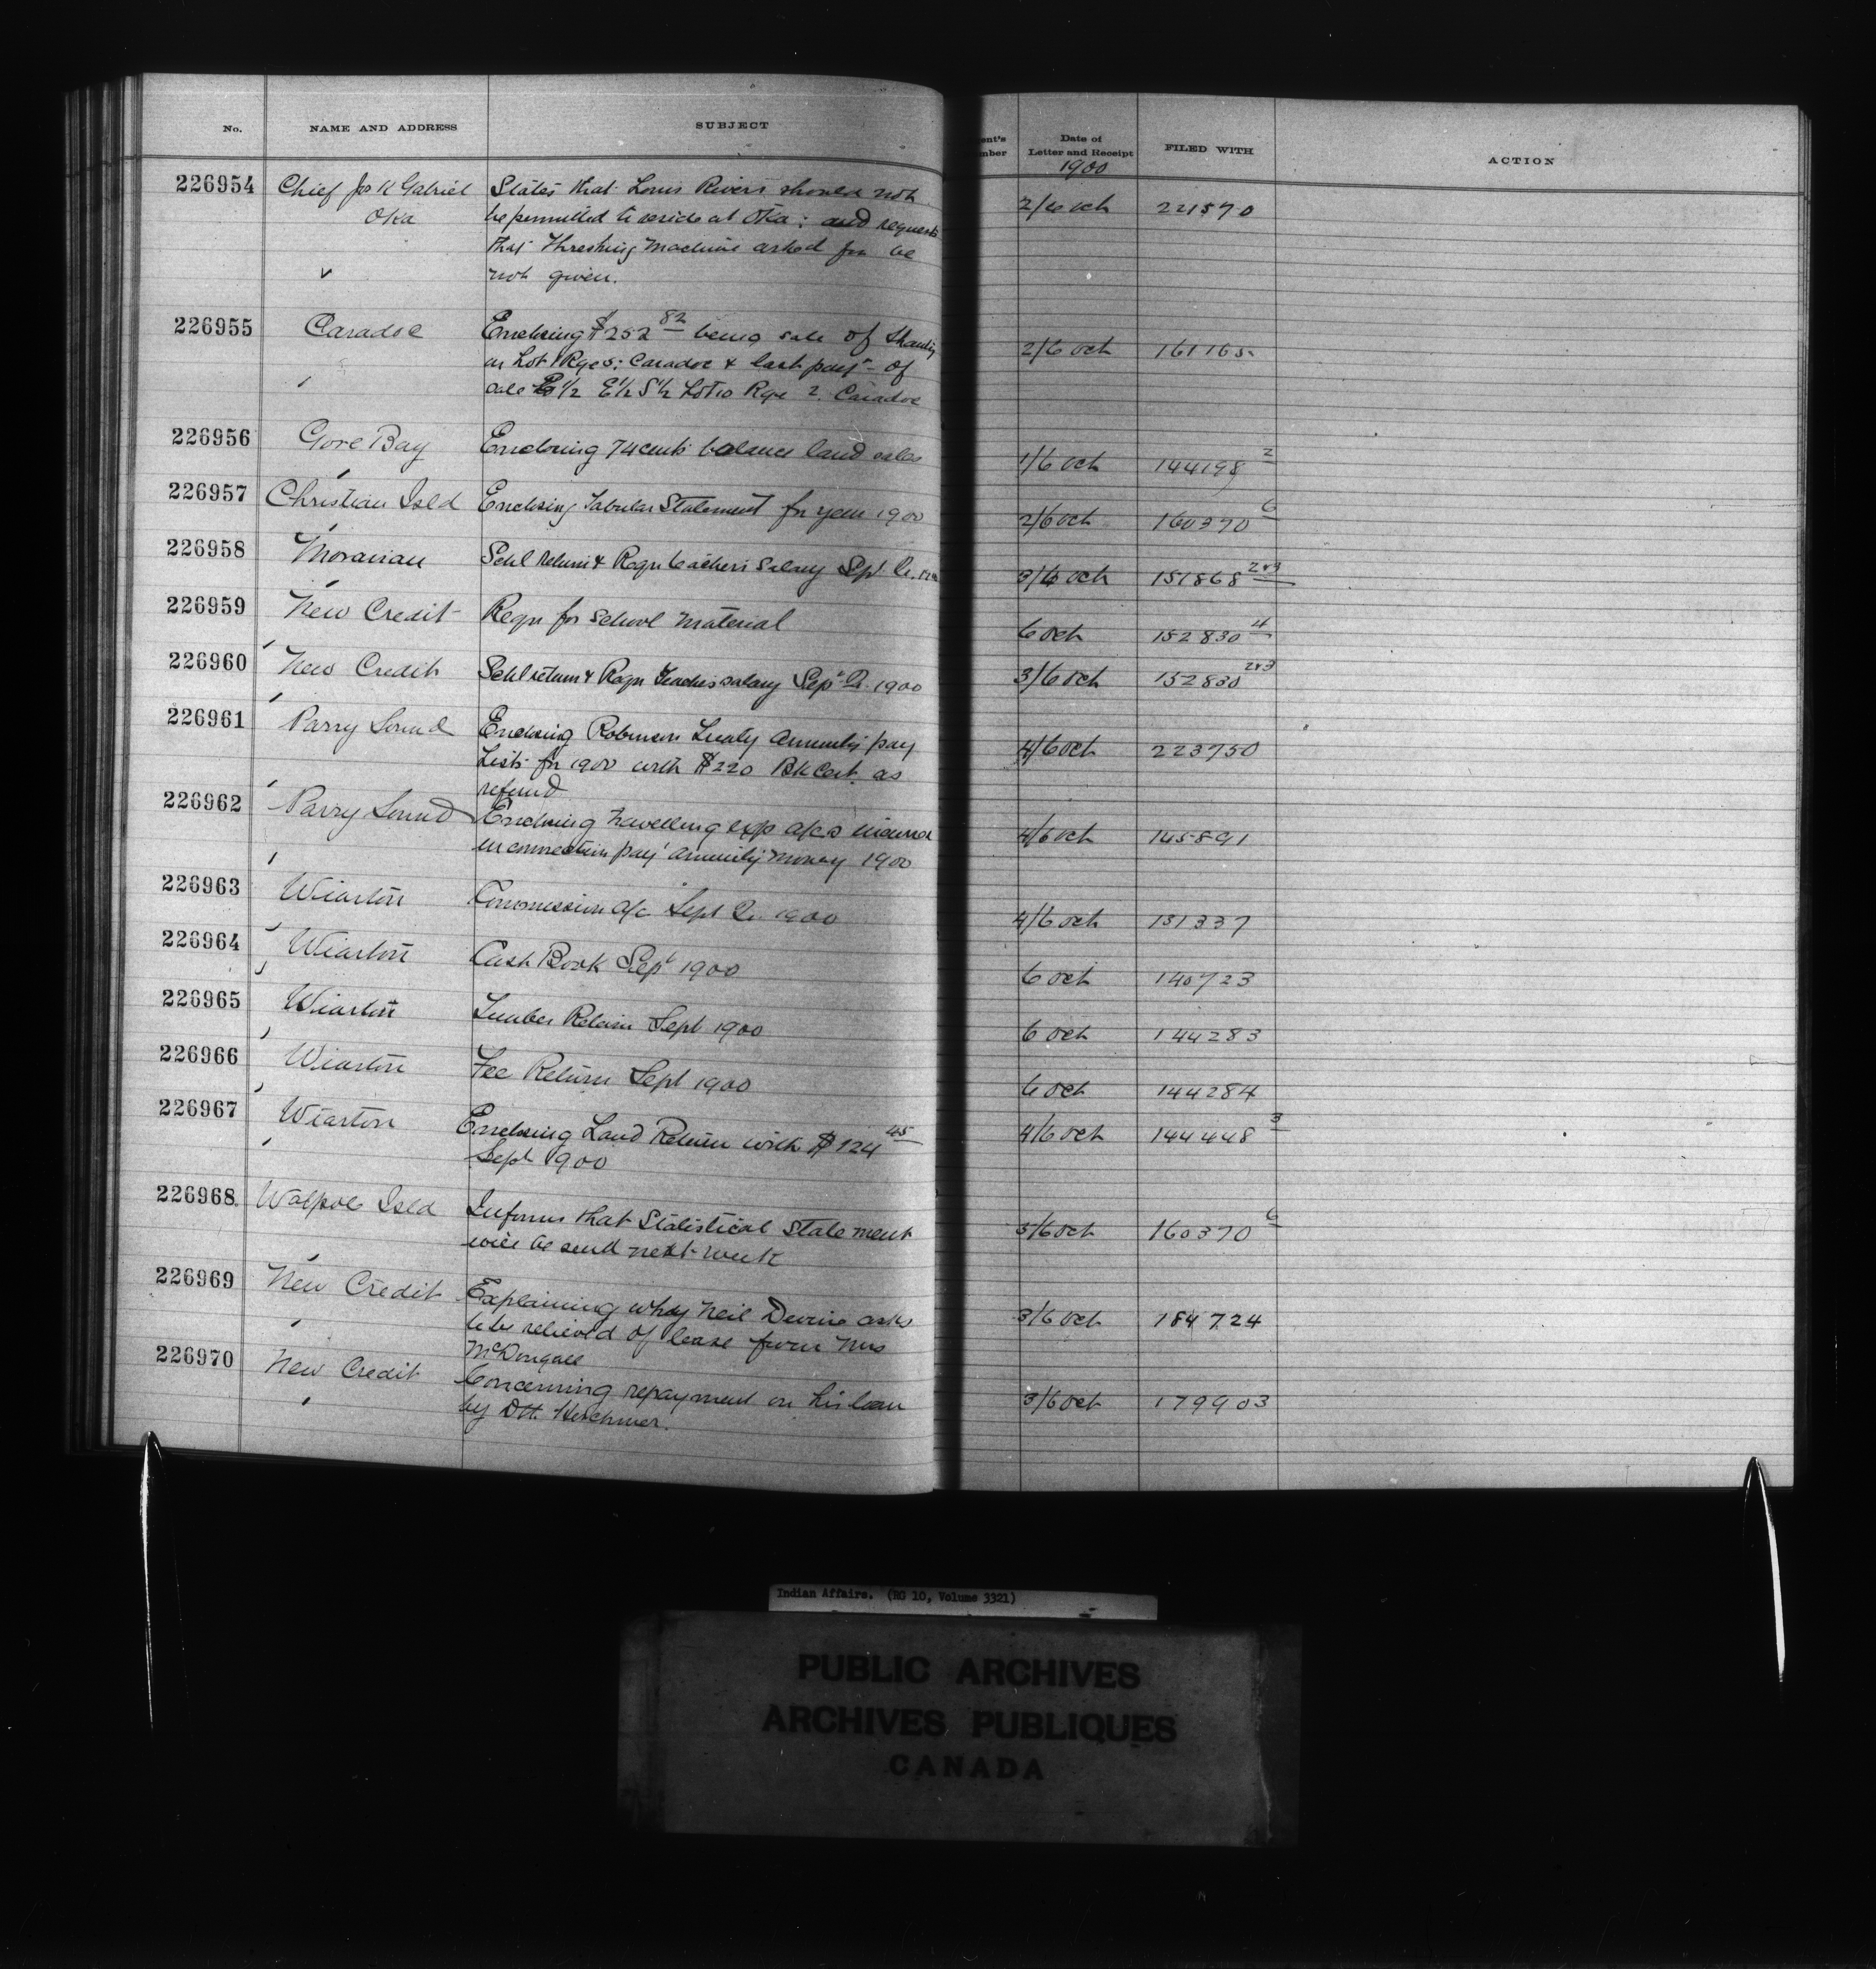 No. NAME AND ADDRESS SUBJECT
ent's mber Date of Letter and Receipt FILED WITH ACTION
1900
226954 Chief Jos K Gabriel States that Louis Rivers should not
Oka be permitted to reside at Oka; and requests 2/6 Oct 221570
that Threshing Machine asked for be
not given.
226955 Caradoc Enclosing $252 82 being sale of
on Lot 1 Rge 5; Caradoc & last payt of 2/6 Oct 161165
sale E 1/2 E 1/2 S 1/2 Lot 10 Rge 2. Caradoc
226956 Gore Bay Enclosing 74 cents balance land sales 1/6 Oct 144198 2
226957 Christian Isld Enclosing Tabular Statement for year 1900 2/6 Oct 160370 6
226958 Moravian Schl return & Reqn teachers Salary Sept Qr. 1900 3/6 Oct 151868 2&3
226959 New Credit Reqn for School Material 6 Oct 152830 4
226960 New Credit Schl return & Reqn Teachers salary Sept Qr. 1900 3/6 Oct 152830 2&3
226961 Parry Sound Enclosing Robinson Treaty Annuity pay
Lists for 1900 with $220 Bk Cert. as 4/6 Oct 223750
refund
226962 Parry Sound Enclosing travelling exp a/cs incurred
in connection payt annuity money 1900 4/6 Oct 145891
226963 Wiarton Commission a/c Sept Qr. 1900 4/6 Oct 151337
226964 Wiarton Cash Book Sept 1900 6 Oct 140723
226965 Wiarton Timber Return Sept 1900 6 Oct 144283
226966 Wiarton Fee Return Sept 1900 6 Oct 144284
226967 Wiarton Enclosing Land Return with $124 45 4/6 Oct 144448 3
Sept 1900
226968 Walpole Isld Informs that Statistical Statement
will be send next week 5/6 Oct 160370 6
226969 New Credit Explaining why Neil Devine asks
to be relieved of lease from Mrs 3/6 Oct 184724
McDougall
226970 New Credit Concerning repayment on his loan
by DH. Herchmer. 3/6 Oct 179903
Indian Affairs. (RG 10, Volume 3321)
PUBLIC ARCHIVES
ARCHIVES PUBLIQUES
CANADA